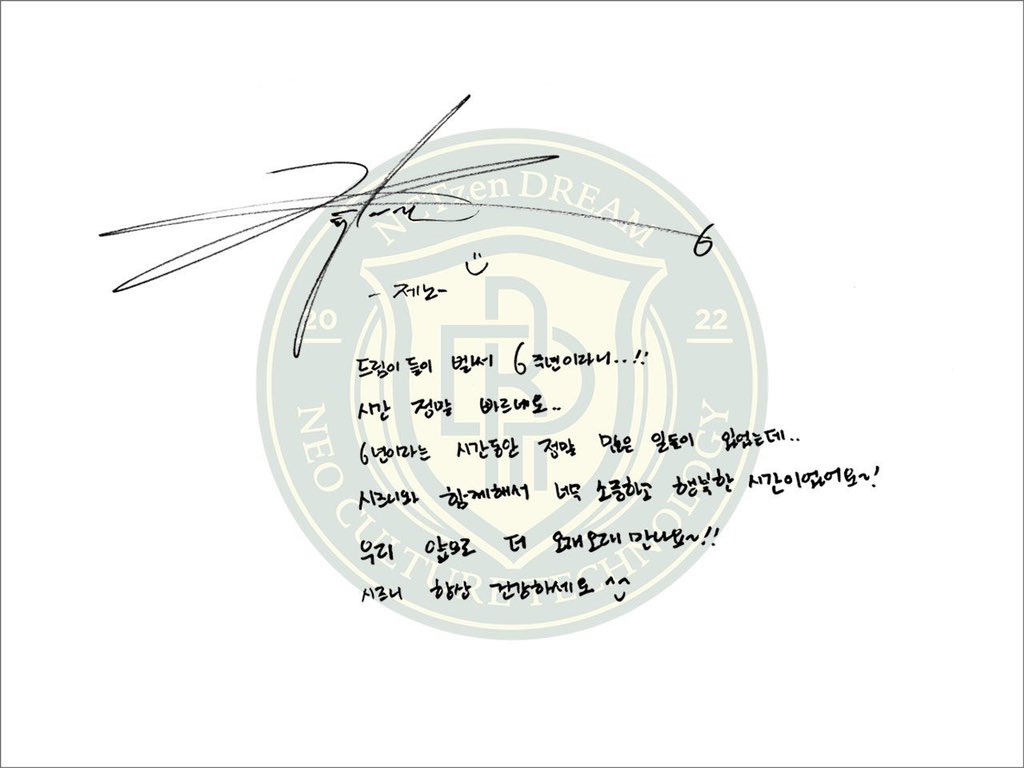 NCTzen DREAM
6
- 제노 -
20
22
드림이들이 벌써 6주년이라니..!!
시간 정말 빠르네요..
6년이라는 시간동안 정말 많은 일들이 있었는데..
시즈니와 함께해서 너무 소중하고 행복한 시간이었어요~!
우리 앞으로 더 오래오래 만나요~!!
시즈니 항상 건강하세요 ^^
NEO CULTURE TECHNOLOGY